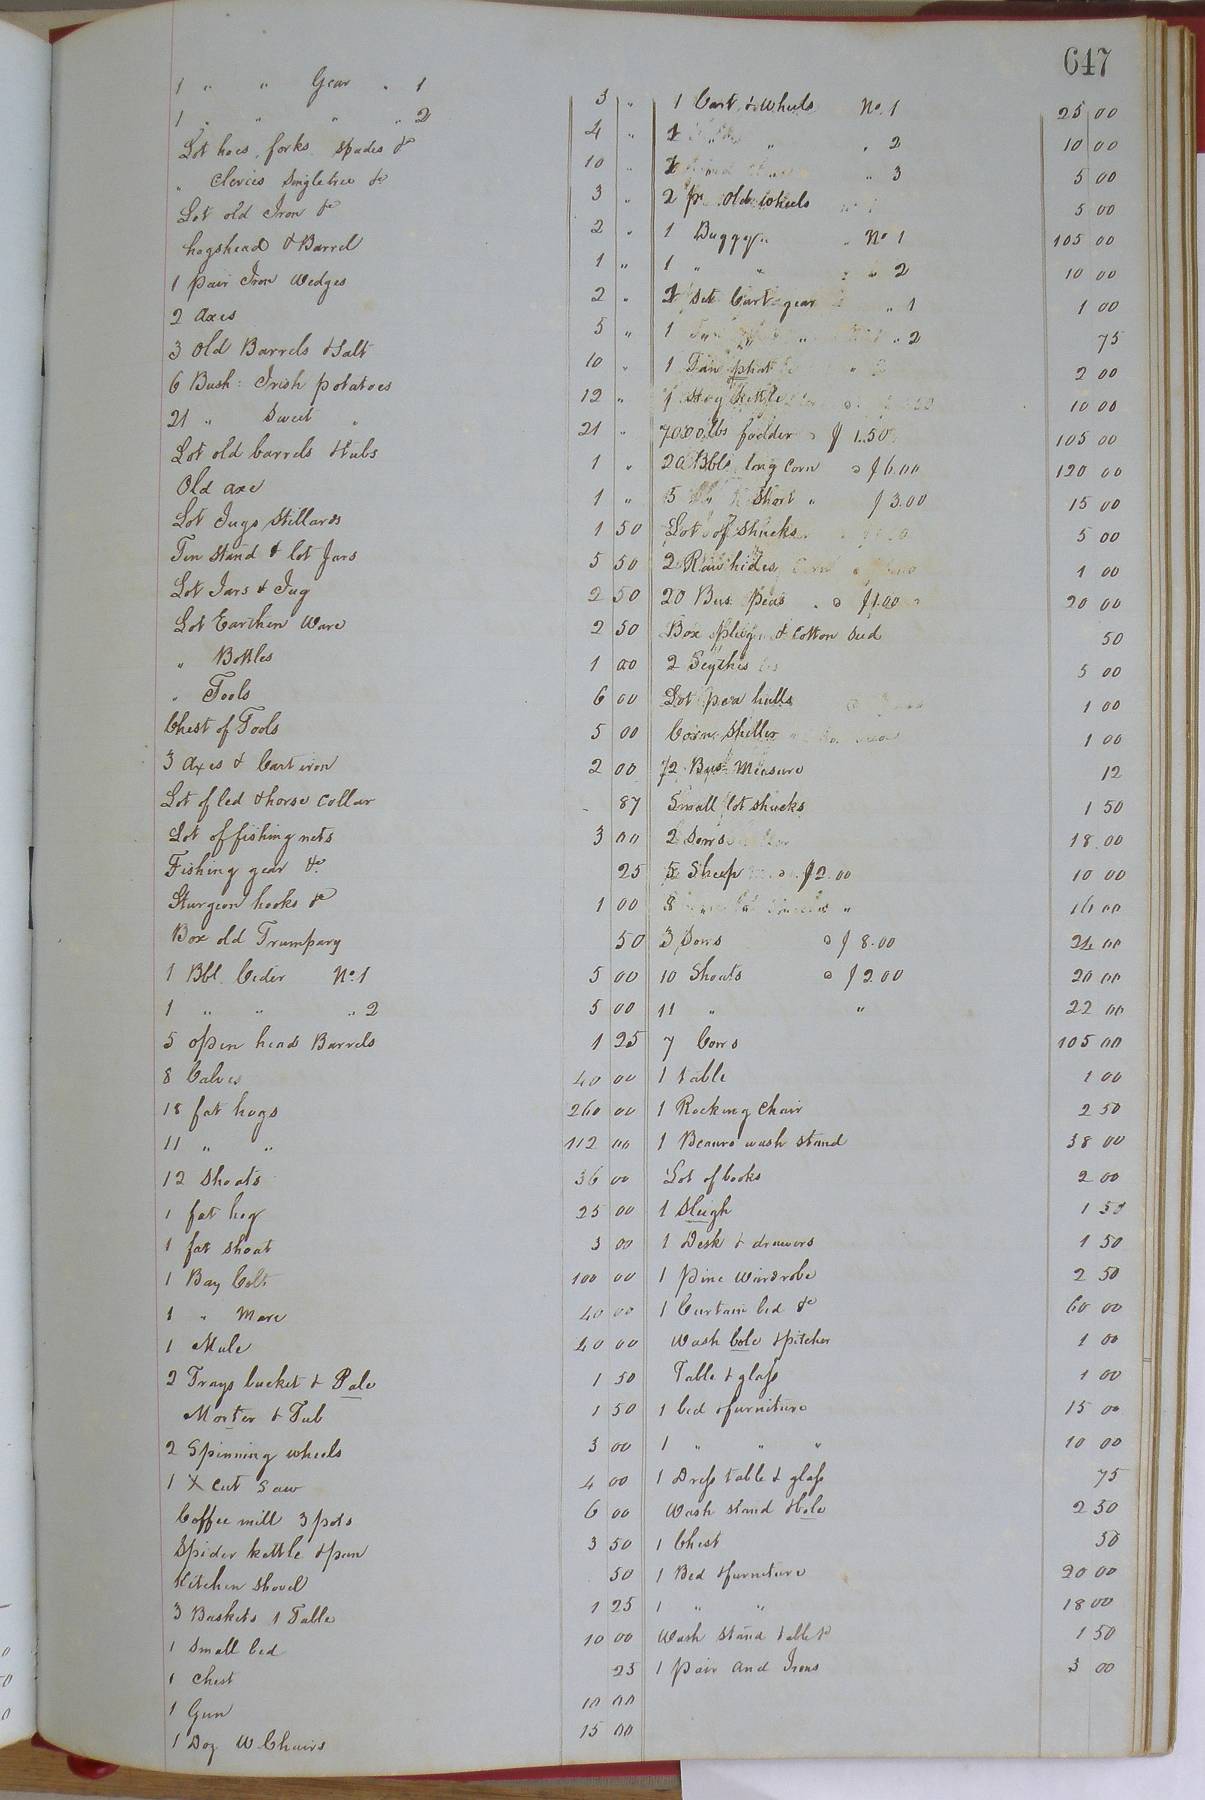 647
1 " " Gear " 1 3 "
1 " " " " 2 4 "
Lot hoes, forks spades &c 10 "
" Clevies Singletree &c 3 "
Lot old Iron &c 2 "
hogshead & Barrel 1 "
1 pair Iron Wedges 2 "
2 Axes 5 "
3 Old Barrels & Salt 10 "
6 Bush: Irish potatoes 12 "
21 " Sweet " 21 "
Lot old barrels & tubs 1 "
Old axe 1 "
Lot Jugs Stillards 1 50
Tin Stand & lot Jars 5 50
Lot Jars & Jug 2 50
Lot Earthen Ware 2 50
" Bottles 1 00
" Tools 6 00
Chest of Tools 5 00
3 Axes & Cart iron 2 00
Lot of led & horse Collar - 87
Lot of fishing nets 3 00
Fishing gear &c 25
Sturgeon hooks &c 1 00
Box old Trumpary 50
1 Bbl. Cider No. 1 5 00
1 " " " 2 5 00
5 open head Barrels 1 25
8 Calves 40 00
18 fat hogs 260 00
11 " " 112 00
12 Shoats 36 00
1 fat hog 25 00
1 fat shoat 3 00
1 Bay Colt 100 00
1 " Mare 40 00
1 Mule 40 00
2 Trays bucket & Pale 1 50
Morter & Tub 1 50
2 Spinning wheels 3 00
1 X Cut Saw 4 00
Coffee mill 3 pots 6 00
Spider kettle & pan 3 50
Kitchen Shovel 50
3 Baskets 1 Table 1 25
1 Small bed 10 00
1 Chest 25
1 Gun 10 00
1 Doz W Chairs 15 00
1 Cart & Wheels No. 1 25 00
1 " " " 2 10 00
1 " 3 5 00
2 pr. Old Wheels 5 00
1 Buggy " " No 1 105 00
1 " " " " 2 10 00
1 Set Cart gear " 1 1 00
1 " 2 75
1 Fan 2 00
1 Hog Kettle 10 00
7000 lbs fodder @ $1.50 105 00
20 Bbls long Corn @ $6.00 120 00
5 " Short " $3.00 15 00
Lot of Shucks 5 00
2 Raw hides 1 00
20 Bus. Peas @ $1.00 20 00
Box & Cotton Seed 50
2 Scythes 5 00
Lot pea hulls 1 00
Corn Sheller 1 00
1/2 Bus. Measure 12
Small lot shucks 1 50
2 Sows 18 00
5 Sheep @ $2.00 10 00
8 " 16 00
3 Sows @ $8.00 24 00
10 Shoats @ $2.00 20 00
11 " " 22 00
7 Cows 105 00
1 table 1 00
1 Rocking Chair 2 50
1 Beauro wash stand 38 00
Lot of books 2 00
1 Sleigh 1 50
1 Desk & drawers 1 50
1 pine Wardrobe 2 50
1 Curtain bed &c 60 00
Wash bole & pitcher 1 00
Table & glass 1 00
1 bed & furniture 15 00
1 " " " 10 00
1 Dress table & glass 75
Wash stand & bole 2 50
1 Chest 50
1 Bed & furniture 20 00
1 " " 18 00
Wash Stand table &c 1 50
1 pair and Irons 3 00